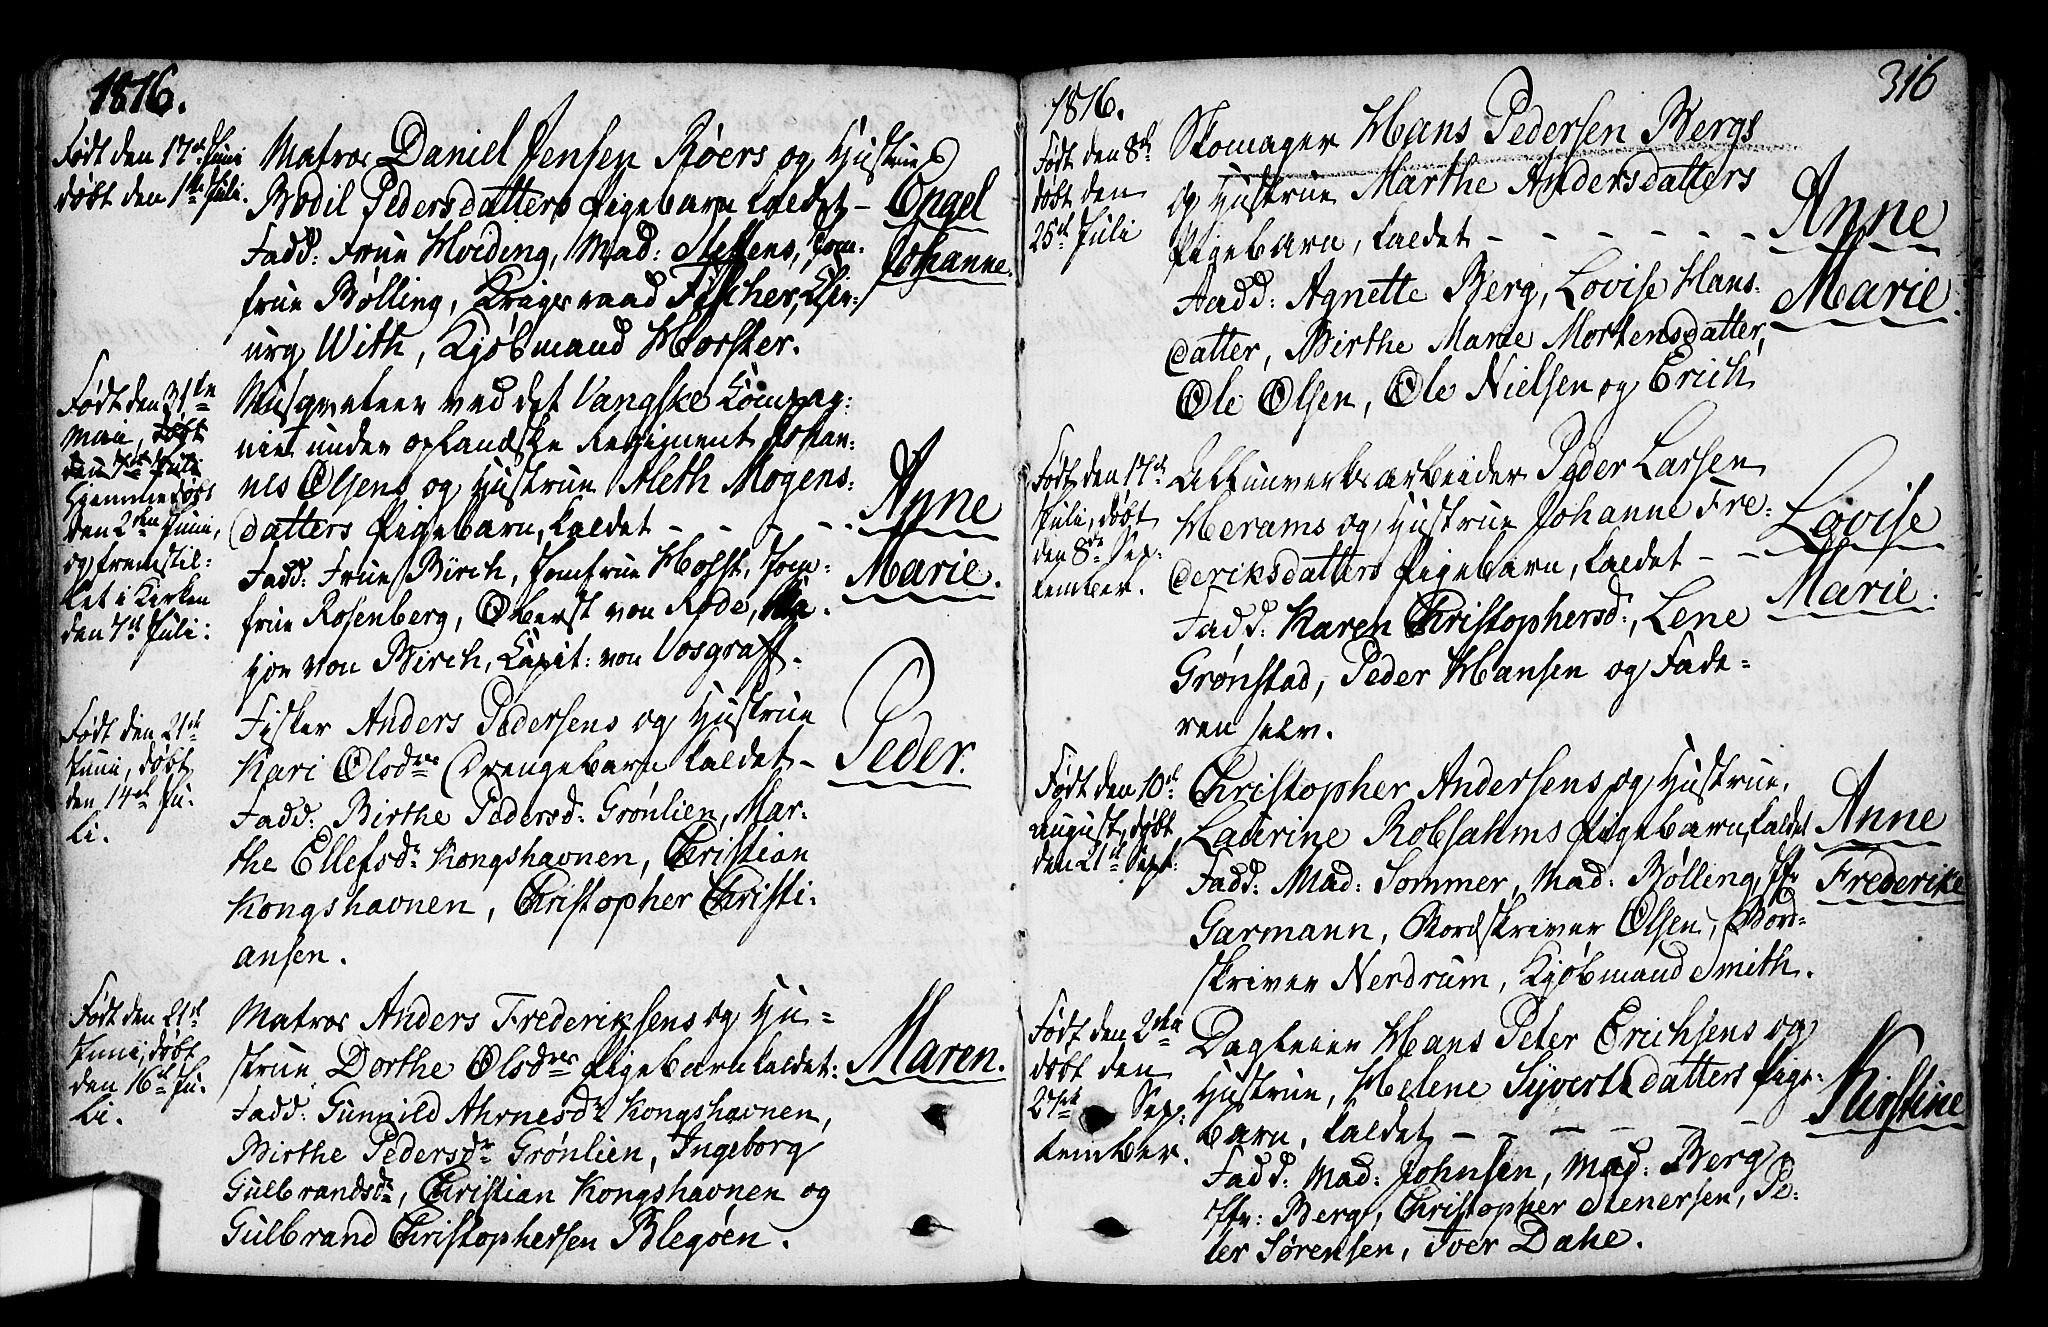 1816.
Født den 17de Juni
døbt den 1ste Juli.
Matros Daniel Jensen Røers og Hustrues
Bodil Pedersdatters Pigebarn kaldet –
Engel
Johanne.
Fadd: Frue Hviding, Mad: Steffens, Jom-
frue Bølling, Krigsraad Fischer, Chir-
urg With, Kjøbmand Horster.
Født den 31te
Mai, døbt
den 7de Juli
Hjemmedøbt
den 2den Juni,
og fremstil-
let i Kirken
den 7de Juli.
Musqveteer ved det Vangske Compag:
nie under oplandske Regiment Johan-
nes Olsens og Hustrue Aleth Mogens:
datters Pigebarn, kaldet – – – –
Anne
Marie.
Fadd: Frue Birch, Jomfrue Holst, Jom-
frue Rosenberg, Oberst von Rode, Ma-
jor von Birch, Capit: von Vosgraff.
Født den 21de
Juni, døbt
den 14de Ju-
li.
Fisker Anders Pedersens og Hustrue
Kari Olsdrs Drengebarn kaldet –
Peder.
Fadd: Birthe Pedersd: Grønlien, Mar-
the Ellefsdr Kongshavnen, Christian
Kongshavnen, Christopher Christi-
ansen.
Født den 21de
Juni, døbt
den 16de Ju-
li.
Matros Anders Frederiksens og Hu-
strue Dorthe Olsdrs Pigebarn kaldet:
Maren.
Fadd: Gunnild Ahrnesdr Kongshavnen,
Birthe Pedersdr Grønlien, Ingeborg
Gulbrandsdr, Christian Kongshavnen og
Gulbrand Christophersen Blegøen.
316
1816.
Født den 8de
døbt den
25de Juli
Skomager Hans Pedersen Bergs
og Hustrue Marthe Andersdatters
Pigebarn, kaldet – – – – – –
Anne
Marie.
Fadd: Agnette Berg, Lovise Hans-
datter, Birthe Marie Mortensdatter,
Ole Olsen, Ole Nielsen og Erich
Født den 17de
Juli, døbt
den 8de Sep-
tember.
Allunverksarbeider Peder Larsen
Herams og Hustrue Johanne Fre-
deriksdatters Pigebarn, kaldet – –
Lovise
Marie.
Fadd: Karen Christophersd:, Lene
Grønstad, Peder Hansen og Fade-
ren selv.
Født den 10de
August, døbt
den 21de Sept:
Christopher Andersens og Hustrue,
Laurine Robsahms Pigebarn, kaldet
Anne
Frederike
Fadd: Mad: Sommer, Mad: Bølling, Jfr
Garmann, Bordskriver Olsen, Bord-
skriver Nerdrum, Kjøbmand Smith.
Født den 2den
døbt den
27de Sep-
tember.
Dagleier Hans Peter Erichsens og
Hustrue, Helene Syvertsdatters Pige-
barn, kaldet – – – – –
Kirstine
Fadd: Mad: Johnsen, Mad: Berg,
Jfr: Berg, Christopher Stenersen, Pe-
ter Sørensen, Iver Dahe.